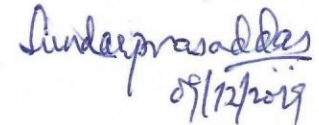 Sundarprasad Das
09/12/2019